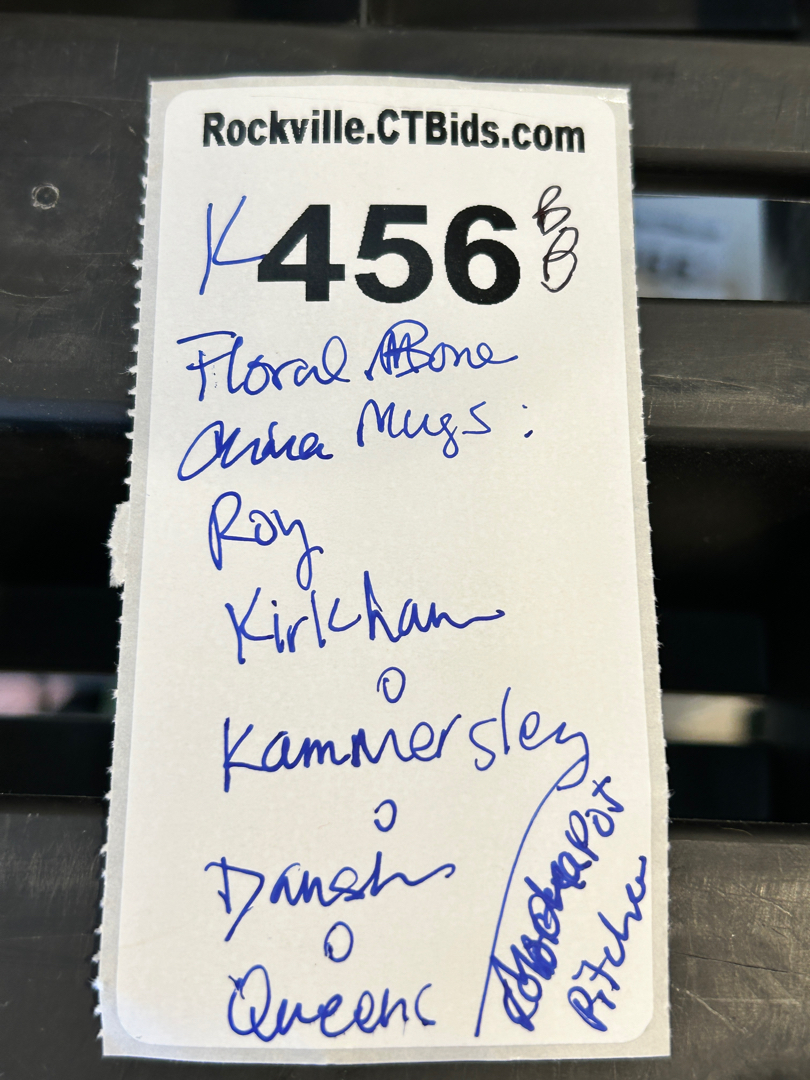 Rockville.CTBids.com
K 456 BB
Floral Bone
China Mugs :
Roy
Kirkham
o
Kammersley
o
Danesh
o
Queens
Pitcher